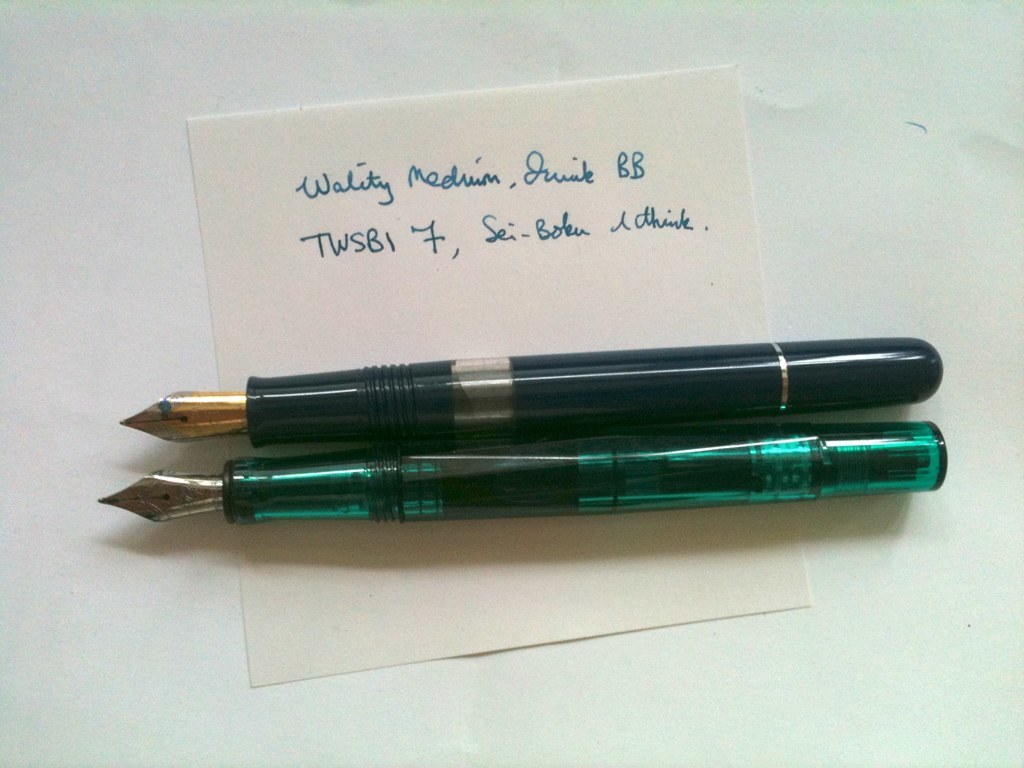 Wality Medium, Quink BB
TWSBI 7, Sei-Boku I think.